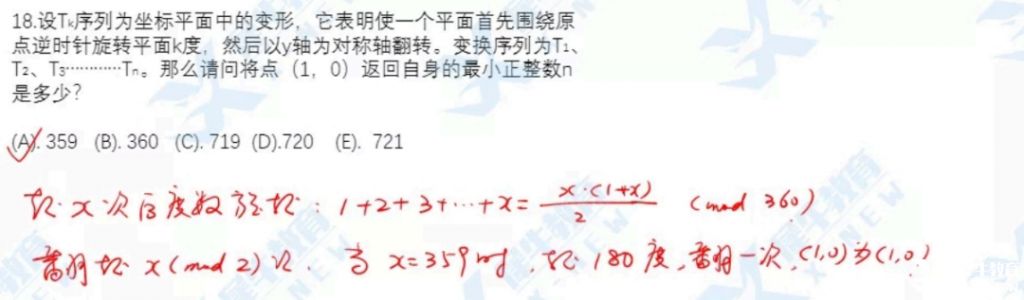 18.设Tk序列为坐标平面中的变形，它表明使一个平面首先围绕原
点逆时针旋转平面k度，然后以y轴为对称轴翻转。变换序列为T₁、
T₂、T₃…………Tₙ。那么请问将点（1，0）返回自身的最小正整数n
是多少？
(A). 359 (B). 360 (C). 719 (D).720 (E). 721
转 x 次后度数旋转：1+2+3+…+x= x·(1+x)/2 (mod 360)
翻转 x(mod 2)次. 当 x=359时，转180度，翻一次，(1,0)为(1,0)